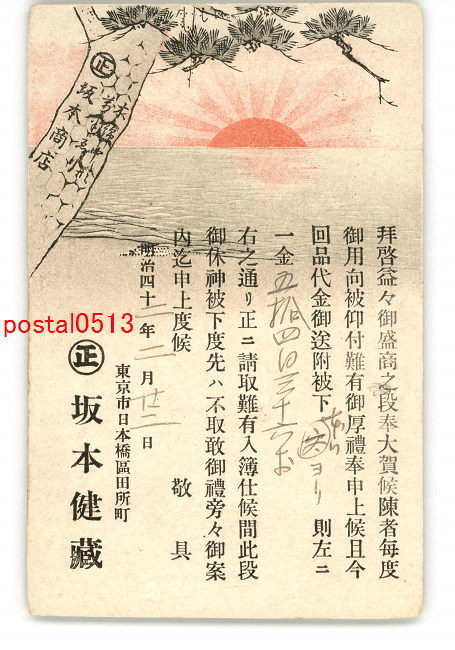 拜啓益々御盛商之段奉大賀候陳者每度
御用向被仰付難有御厚禮奉申上候且今
回品代金御送附被下 ヨリ 則左ニ
一金五拾四円三十六
右之通リ正ニ請取難有入簿仕候間此段
御休神被下度先ハ不取敢御禮旁々御案
內迄申上度候 敬具
明治四十二年二月廿二日
東京市日本橋區田所町
正 坂本健藏
正
坂本商店
postal0513